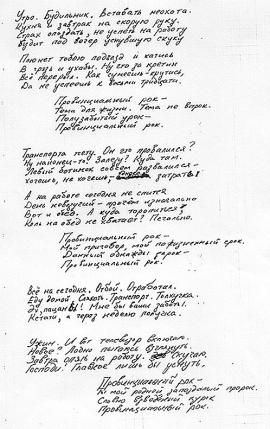 Утро. Будильник. Вставать неохота.
Кухня и завтрак на скорую руку.
Страх опоздать, не успеть на работу
Будит под вечер уснувшую скуку
Пинает тобою подъезд и
В груз и ухабы. Ну что за кретин
Всё перерыл. Как сумеешь – крутись,
Да не успеешь к восьми тридцати.
Провинциальный рок –
Тема для жизни. Тема не впрок.
Полузабытый урок –
Провинциальный рок.
Транспорта нету. Он что провалился?
Ну наконец-то! Залезу? Куда там.
Левый ботинок совсем развалился –
Хочешь, не хочешь, затраты!
А на работе сегодня не спится
День невезучий – причём изначально
Вот и обед. А куда торопиться?
Коль на обед не хватает? Печально.
Провинциальный рок –
Мой приговор, мой пожизненный срок.
Данный однажды зарок –
Провинциальный рок.
Всё на сегодня. Отбой. Отработал.
Еду домой. Транспорт. Толкучка.
Эх, пацаны! Мне бы ваши заботы!
Кстати, а через неделю получка.
Ужин. И вот телевизор включаю.
Новое? Ладно пытаюсь взглянуть.
Завтра опять на работу. Скучаю,
Господи! Главное лишь бы уснуть.
Провинциальный рок –
Ты мой родной запоздалый пророк.
Словно взведённый курок
Провинциальный рок.